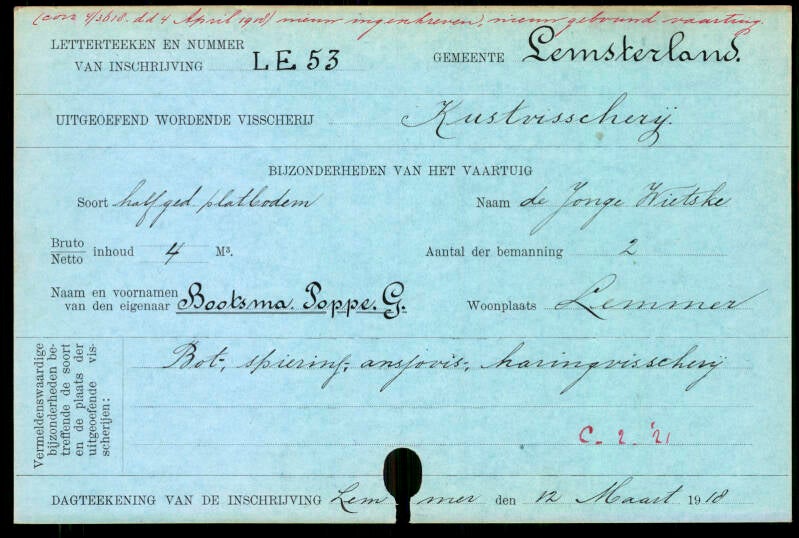 (corr 4/3618. dd 4 April 1918) nieuw ingeschreven, nieuw gebouwd vaartuig.
LETTERTEEKEN EN NUMMER VAN INSCHRIJVING LE 53 GEMEENTE Lemsterland.
UITGEOEFEND WORDENDE VISSCHERIJ Kustvisscherij.
BIJZONDERHEDEN VAN HET VAARTUIG
Soort halfged platbodem Naam de Jonge Wietske
Bruto
Netto inhoud 4 M³. Aantal der bemanning 2
Naam en voornamen
van den eigenaar Bootsma. Poppe. G. Woonplaats Lemmer
Vermeldenswaardige
bijzonderheden be-
treffende de soort
en de plaats der
uitgeoefende vis-
scherijen:
Bot-, spiering-, ansjovis-, haringvisscherij
C - 2 - '21
DAGTEEKENING VAN DE INSCHRIJVING Lemmer den 12 Maart 1918